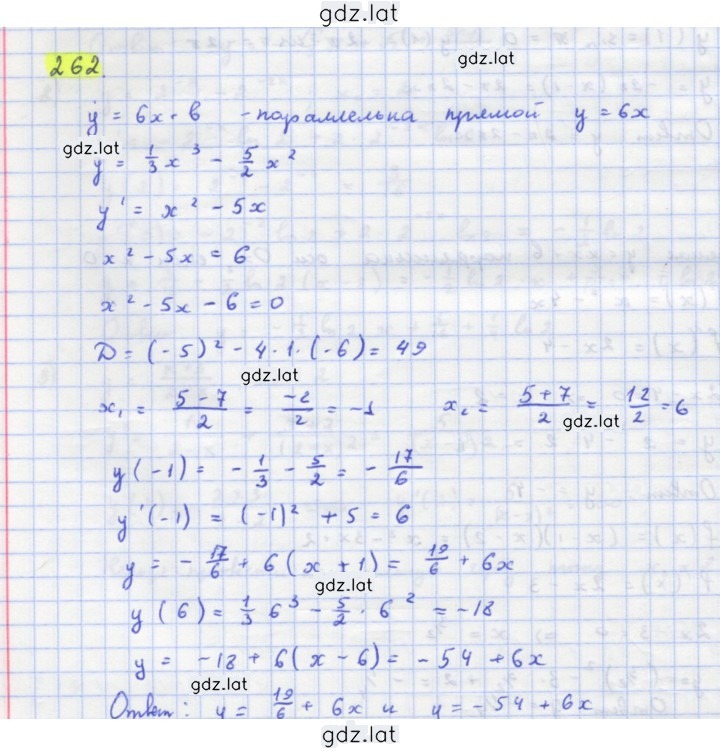 gdz.lat
262.
gdz.lat
y = 6x + b - параллельна прямой y = 6x
gdz.lat
y = 1/3 x³ - 5/2 x²
y' = x² - 5x
x² - 5x = 6
x² - 5x - 6 = 0
D = (-5)² - 4·1·(-6) = 49
gdz.lat
x₁ = (5-7)/2 = -2/2 = -1 x₂ = (5+7)/2 = 12/2 = 6
gdz.lat
y(-1) = -1/3 - 5/2 = -17/6
y'(-1) = (-1)² + 5 = 6
y = -17/6 + 6(x+1) = 19/6 + 6x
gdz.lat
y(6) = 1/3 6³ - 5/2 · 6² = -18
y = -18 + 6(x-6) = -54 + 6x
gdz.lat
Ответ: y = 19/6 + 6x и y = -54 + 6x
gdz.lat